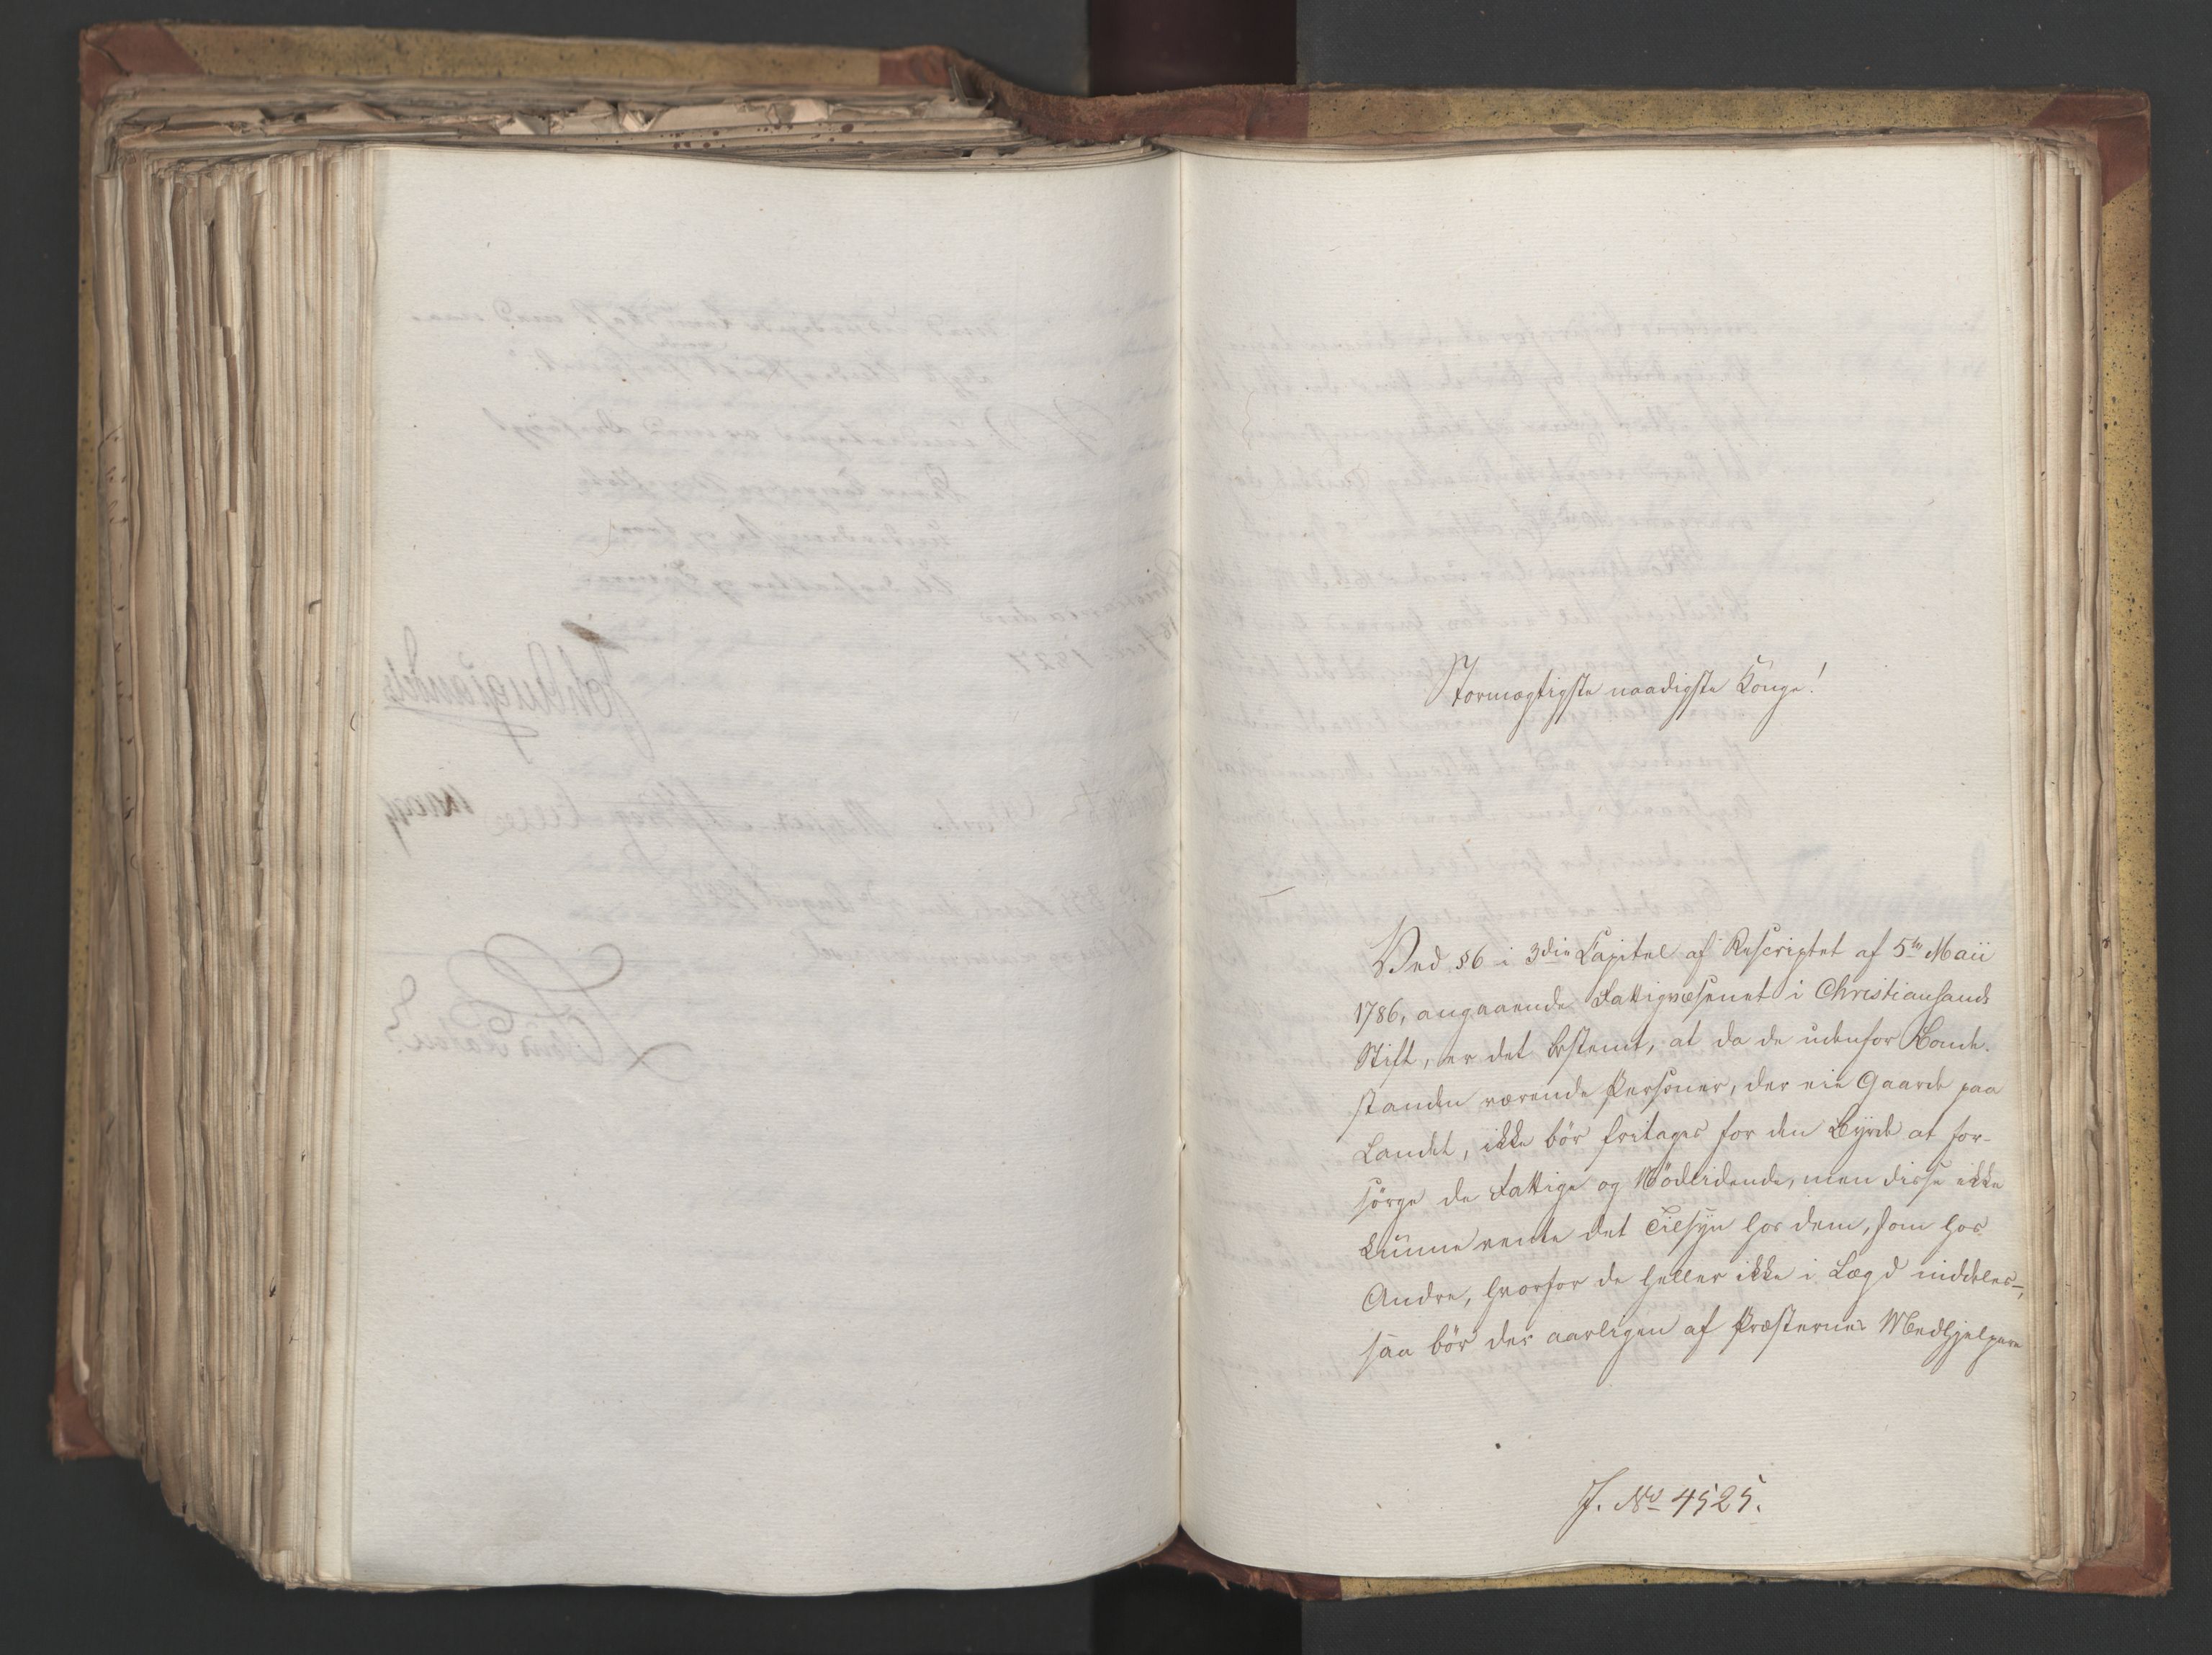 Stormægtigste naadigste Konge!
Ved §6 i 3die Capitel af Rescriptet af 5te Maii
1786, angaaende Fattigvæsenet i Christiansands
Stift, er det bestemt, at da de udenfor Bonde-
standen værende Personer, der eie Gaarde paa
Landet, ikke bör fritages for den Byrde at for-
sörge de Fattige og Nödlidende, men disse ikke
kunne vente det Tilsyn hos dem, som hos
Andre, hvorfor de heller ikke i Lægd inddeles,
saa bör der aarligen af Præsternes Medhjelpere
J. No 4525.